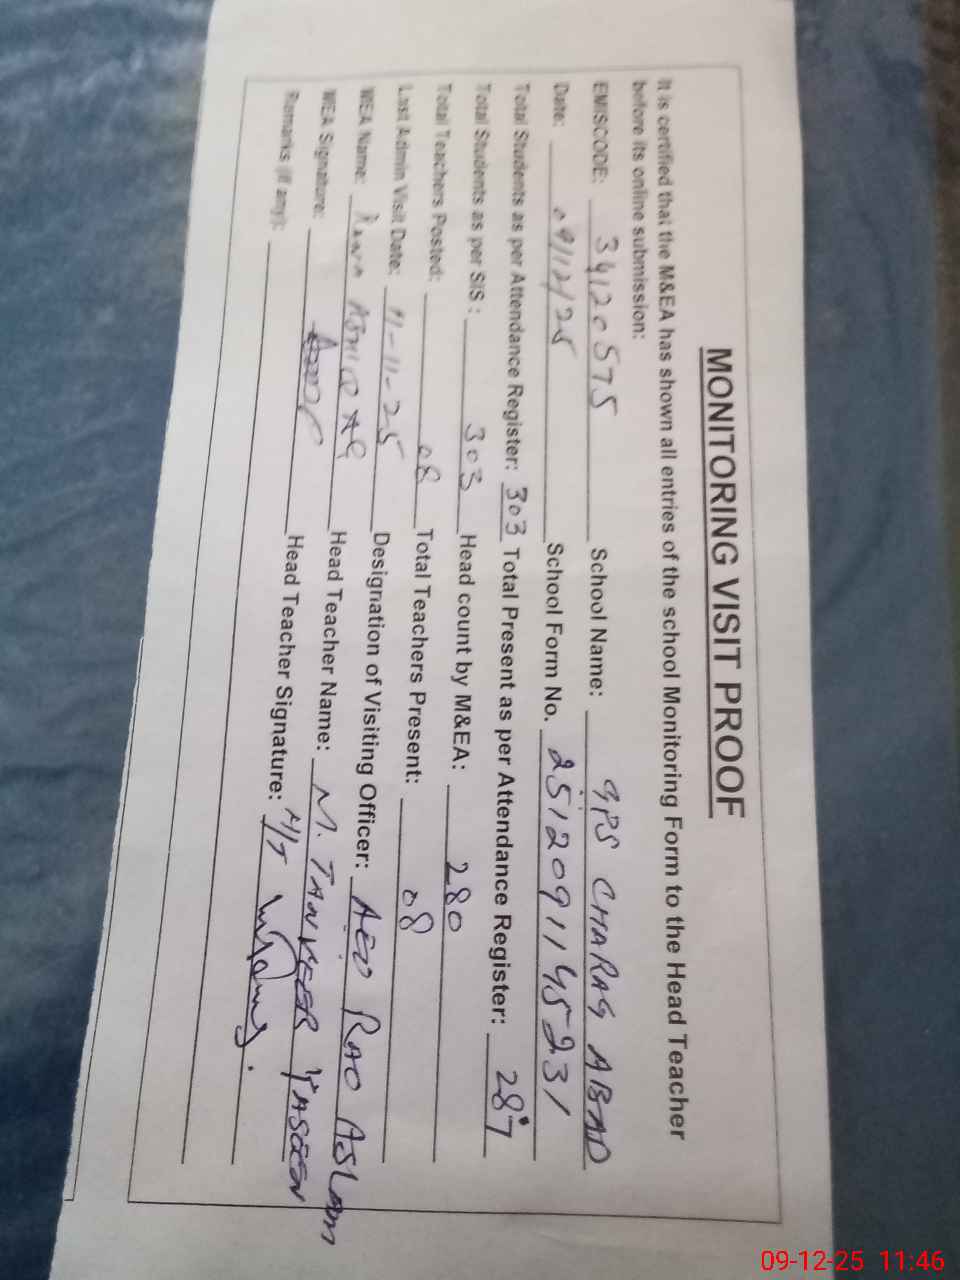 MONITORING VISIT PROOF
It is certified that the M&EA has shown all entries of the school Monitoring Form to the Head Teacher
before its online submission:
EMISCODE: 34120575 School Name: GPS CHARAG ABAD
Date: 09/12/25 School Form No. 2512091145231
Total Students as per Attendance Register: 303 Total Present as per Attendance Register: 287
Total Students as per SIS: 303 Head count by M&EA: 280
Total Teachers Posted: 08 Total Teachers Present: 08
Last Admin Visit Date: 11-11-25 Designation of Visiting Officer: AEO RAO ASLAM
MEA Name: Head Teacher Name: M. TANVEER YASEEN
MEA Signature: Head Teacher Signature: H/T
Remarks (if any):
09-12-25 11:46